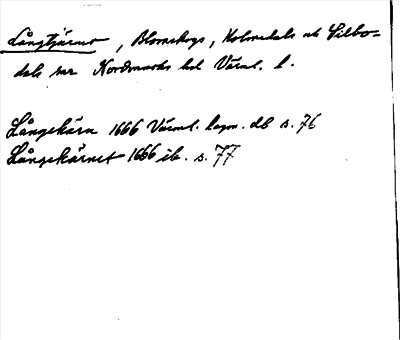 Långtjärnet, Blomskogs, Holmedals och Silbo-
dals snr Nordmarks hd Värml. l.
Långekärn 1666 Värml. lagm. db s. 76
Långekärnet 1666 ib. s. 77